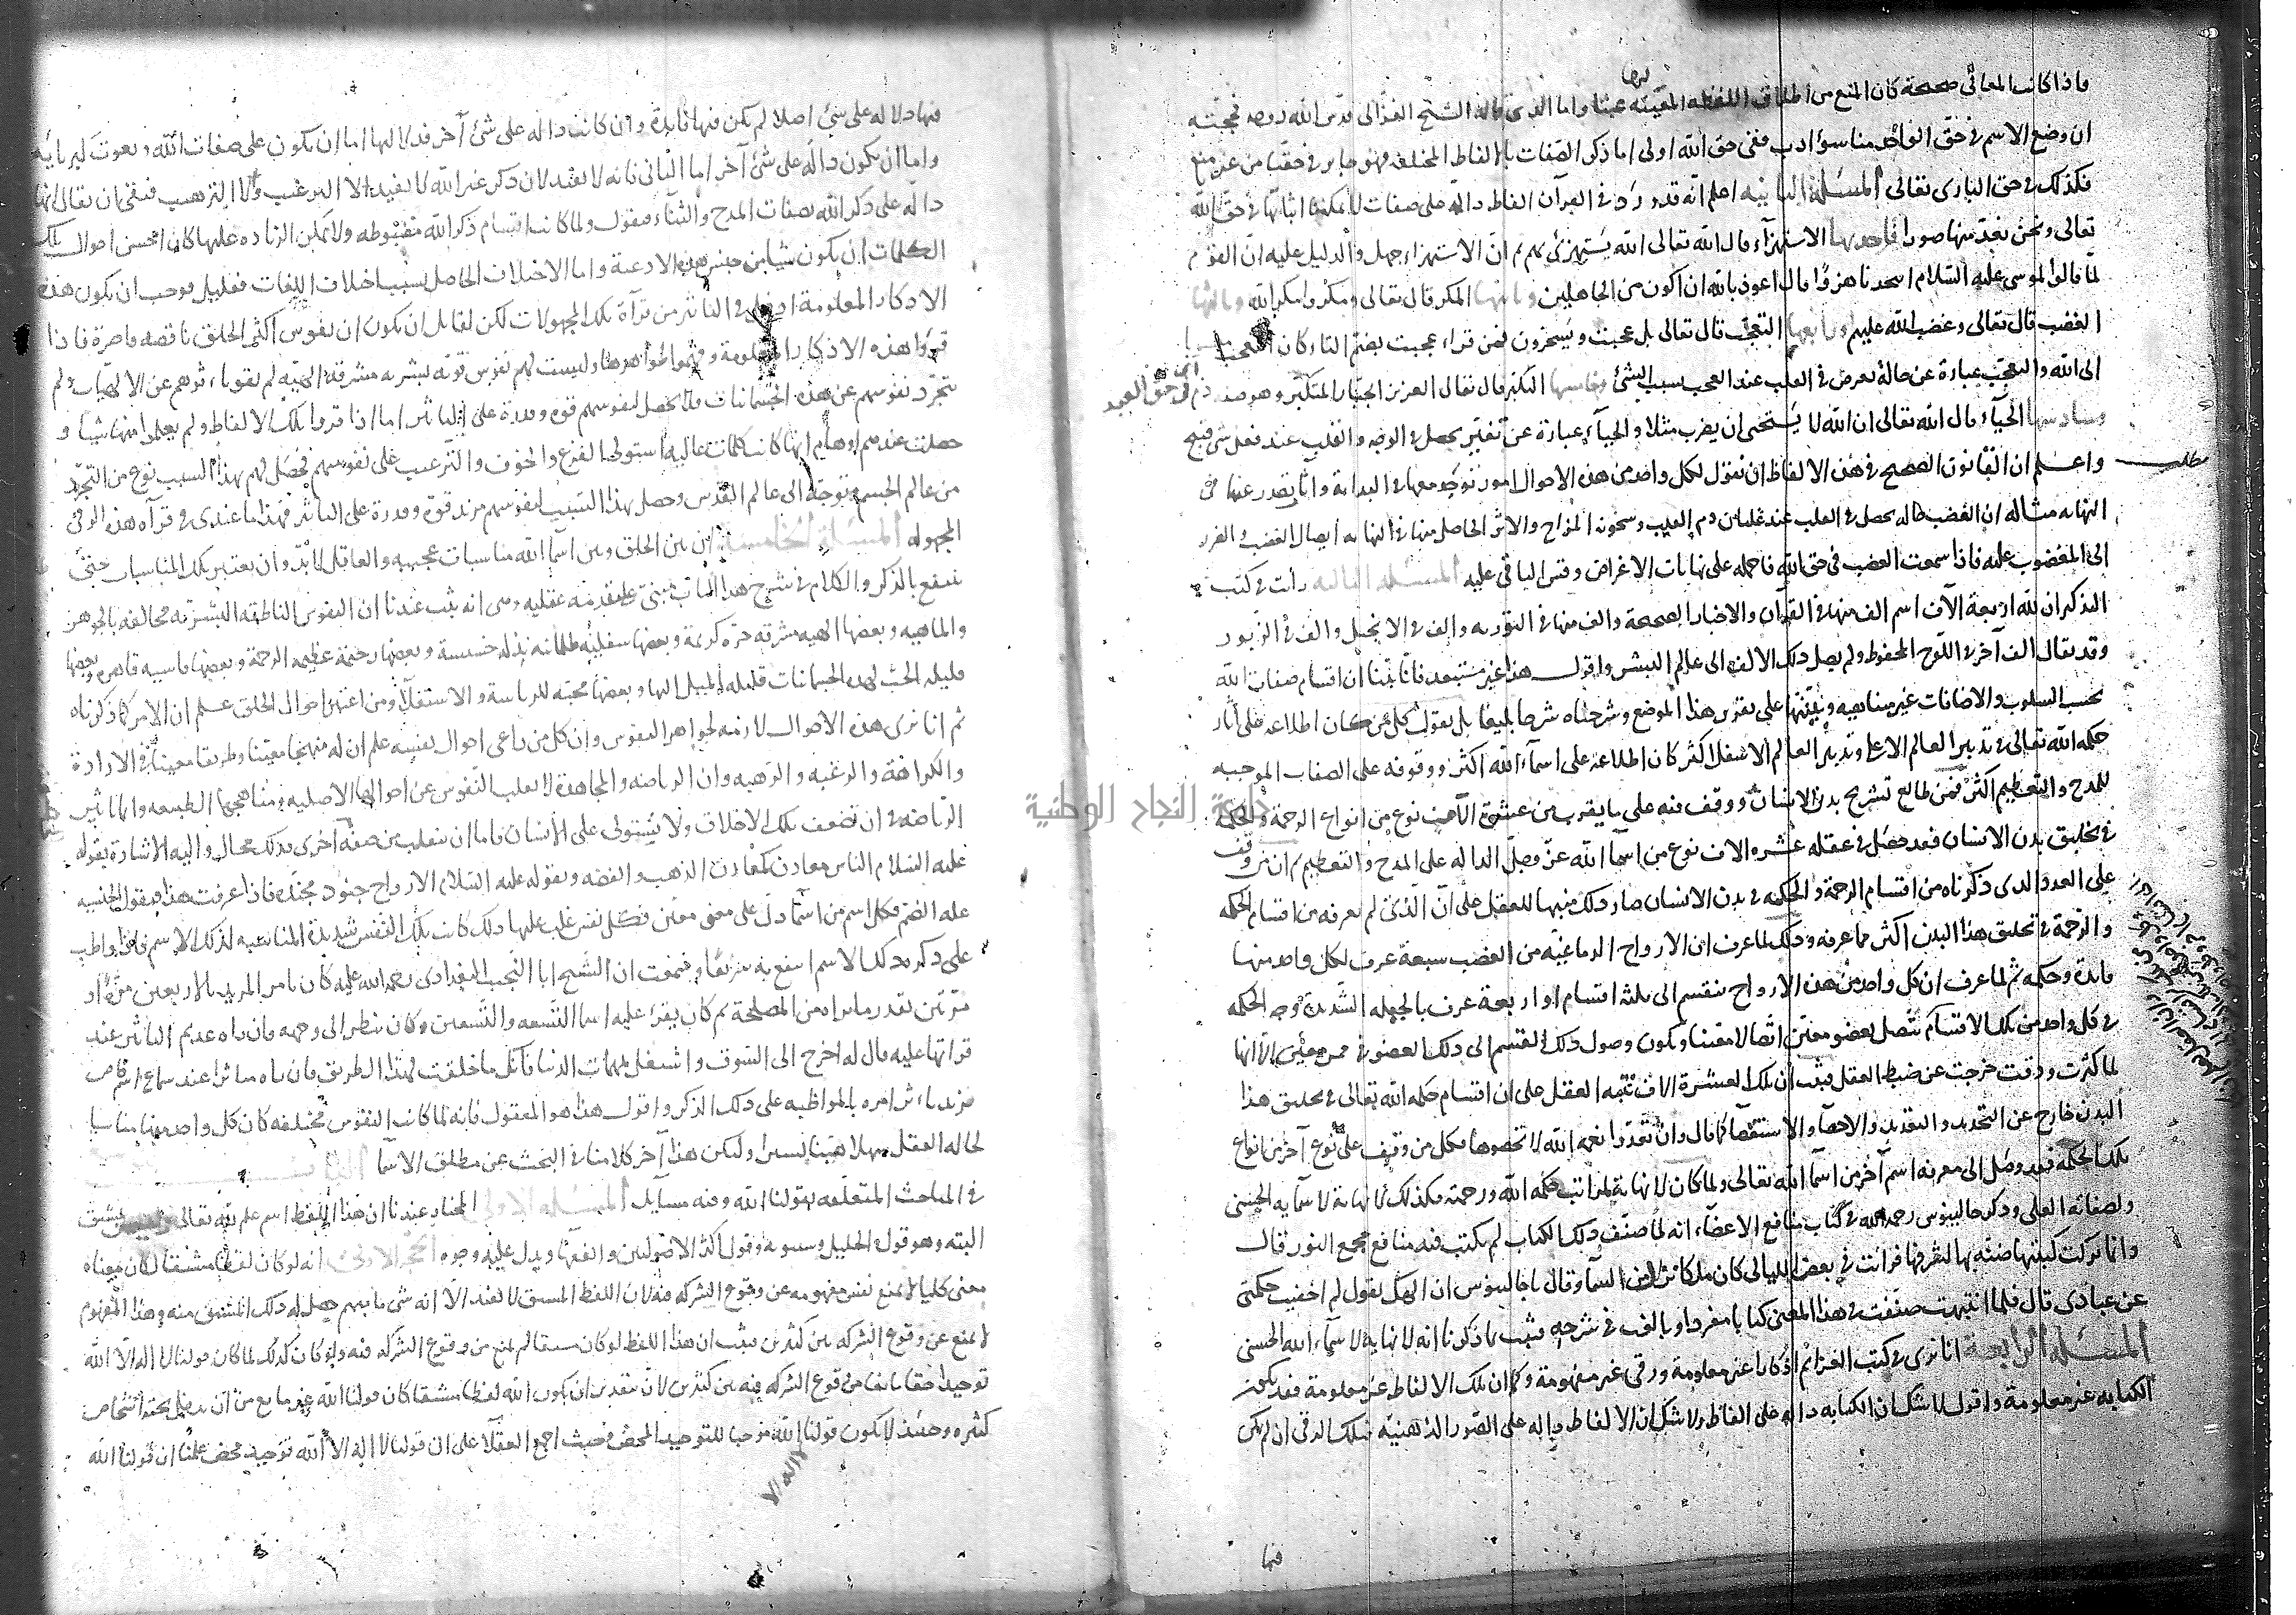 فاذا كانت المعاني صحيحة كان المنع من اطلاق اللفظة المعينة عبثا واما الذي قاله الشيخ الغزالي قدس الله روحه فحجته
ان وضع الاسم في حق الواحد منا سوء ادب ففي حق الله اولى اما ذكر الصفات بالالفاظ المختلفة فهو جايز في حقنا من غير منع
فكذلك في حق الباري تعالى المسئلة الثانية اعلم انه قد ورد في القرآن الفاظ دالة على صفات لا يمكن اثباتها في حق الله
تعالى ونحن نعد منها صورا فاحدها الاستهزاء قال الله تعالى الله يستهزئ بهم ثم ان الاستهزاء جهل والدليل عليه ان القوم
لما قالوا لموسى عليه السلام اتتخذنا هزوا قال اعوذ بالله ان اكون من الجاهلين وثانيها المكر قال تعالى ومكروا ومكر الله وثالثها
الغضب قال تعالى وغضب الله عليهم ورابعها التعجب قال تعالى بل عجبت ويسخرون فمن قراء عجبت بضم التاء كان التعجب منسوبا
الى الله والتعجب عبارة عن حالة تعرض في القلب عند الجهل بسبب الشئ وخامسها التكبر قال تعالى العزيز الجبار المتكبر وهو صفة ذم في حق العبد
وسادسها الحياء قال الله تعالى ان الله لا يستحيي ان يضرب مثلا والحياء عبارة عن تغير يحصل في الوجه والقلب عند فعل شئ قبيح
مطلب
واعلم ان القانون الصحيح في هذه الالفاظ ان نقول لكل واحد من هذه الاحوال امور توجد معها في البداية واثار تصدر عنها في
النهاية مثاله ان الغضب حالة تحصل في القلب عند غليان دم القلب وسخونة المزاج والاثر الحاصل منها في النهاية ايصال الضرر
الى المغضوب عليه فاذا سمعت الغضب في حق الله فاحمله على نهايات الاغراض وقس الباقي عليه المسئلة الثالثة رأيت في كتب
التذكير ان لله اربعة الآف اسم الف منها في القرآن والاخبار الصحيحة والف منها في التورية والف في الانجيل والف في الزبور
وقد يقال الف آخر في اللوح المحفوظ ولم يصل ذلك الالف الى عالم البشر واقول هذا غير مستبعد فانا بينا ان اقسام صفات الله
بحسب السلوب والاضافات غير متناهية ونبهنا على تقرير هذا الموضع وشرحناه شرحا بليغا بل نقول كل من كان اطلاعه على اثار
حكمة الله تعالى في تدبير العالم الاعلى وتدبير العالم الاسفل اكثر كان اطلاعه على اسماء الله اكثر ووقوفه على الصفات الموجبة
للمدح والتعظيم اكثر فمن طالع تشريح بدن الانسان ووقف فيه على ما يقرب من عشرة الآف نوع من انواع الرحمة والحكمة
في تخليق بدن الانسان فقد حصل في عقله عشرة الاف نوع من اسماء الله عز وجل الدالة على المدح والتعظيم ثم ان من وقف
على العدد الذي ذكرناه من اقسام الرحمة والحكمة في بدن الانسان صار ذلك منبها للعقل على ان الذي لم يعرفه من اقسام الحكمة
والرحمة في تخليق هذا البدن اكثر مما عرفه وذلك لما عرف ان الارواح الدماغية من العصب سبعة عرف لكل واحد منها
فايدة وحكمة ثم لما عرف ان كل واحد من هذه الارواح ينقسم الى ثلثة اقسام او اربعة عرف بالجبلة الشديدة وجه الحكمة
في كل واحد من تلك الاقسام يتصل بعضو معين اتصالا معينا ويكون وصول ذلك القسم الى ذلك العضو في ممر معين الا انها
لما كثرت ودقت خرجت عن ضبط العقل فثبت ان تلك العشرة الاف تنبه العقل على ان اقسام حكمة الله تعالى في تخليق هذا
البدن خارج عن التحديد والتعديد والاحصاء والاستقصاء كما قال وان تعدوا نعمة الله لا تحصوها فكل من وقف على نوع آخر من انواع
تلك الحكمة فقد وصل الى معرفة اسم آخر من اسماء الله تعالى ولما كان لا نهاية لمراتب حكمة الله ورحمته فكذلك لا نهاية لاسمايه الحسنى
ولصفاته العلى وذكر جالينوس رحمه الله في كتاب منافع الاعضاء انه لما صنف ذلك الكتاب لم يكتب فيه منافع مجمع النور قال
وانما تركت كتبتها ضنة بها لشرفها فرأيت في بعض الليالي كان ملكا نزل من السماء وقال يا جالينوس ان الهك يقول لم اخفيت حكمتي
عن عبادي قال فلما انتبهت صنفت في هذا المعنى كتابا مفردا وبالغت في شرحه فثبت بما ذكرنا انه لا نهاية لاسماء الله الحسنى
المسئلة الرابعة انا نرى في كتب العزائم اذكارا غير معلومة ورقى غير مفهومة وكما ان تلك الالفاظ غير معلومة فقد تكون
الكتابة غير معلومة واقول لا شك ان الكتابة دالة على الالفاظ ولا شك ان الالفاظ دالة على الصور الذهنية فتلك الرقى ان لم يكن
فيها
فيها دلالة على شئ اصلا لم يكن فيها فايدة وان كانت دالة على شئ آخر فدلالتها اما ان يكون على صفات الله ونعوت كبريائه
واما ان يكون دالة على شئ آخر اما الثاني فانه لا يفيد لان ذكر غير الله لا يفيد لا الترغيب ولا الترهيب فبقي ان يقال انها
دالة على ذكر الله بصفات المدح والثناء فنقول ولما كانت اقسام ذكر الله مضبوطة ولا يمكن الزيادة عليها كان احسن احوال تلك
الكلمات ان يكون شيئا من جنس هذه الادعية واما الاختلاف الحاصل بسبب اختلاف اللغات فقليل فوجب ان يكون هذه
الاذكار المعلومة ادخل في التاثير من قرآة تلك المجهولات لكن لقايل ان يكون ان نفوس اكثر الخلق ناقصة قاصرة فاذا
قرؤا هذه الاذكار المعلومة وفهموا ظواهرها وليست لهم نفوس قوية بشرية مشرقة الهية لم يقو تاثرهم عن الالهيات ولم
تتجرد نفوسهم عن هذه الجسمانيات فلا تحصل لنفوسهم قوة وقدرة على التاثير اما اذا قروا تلك الالفاظ ولم يعلموا منها شيئا و
حصلت عندهم اوهام انها كانت كلمات عالية استولى الفزع والخوف والرعب على نفوسهم فحصل لهم بهذا السبب نوع من التجرد
من عالم الجسم وتوجه الى عالم القدس وحصل بهذا السبب لنفوسهم مزيد قوة وقدرة على التاثير فهذا ما عندي في قرآة هذه الرقى
المجهولة المسئلة الخامسة ان بين الخلق وبين اسماء الله مناسبات عجيبة والعاقل لا بد وان يعتبر تلك المناسبات حتى
ينتفع بالذكر والكلام في شرح هذا الباب مبني على مقدمة عقلية وهي انه ثبت عندنا ان النفوس الناطقة البشرية مخالفة بالجوهر
والماهية وبعضها الهية مشرقة حرة كريمة وبعضها سفلية ظلمانية نذلة خسيسة وبعضها رحيمة عظيمة الرحمة وبعضها قاسية قاهرة وبعضها
قليلة الحب لهذه الجسمانيات قليلة الميل اليها وبعضها محبة للرياسة والاستعلاء ومن اعتبر احوال الخلق علم ان الامر كما ذكرناه
ثم انا نرى هذه الاحوال لازمة لجواهر النفوس وان كل من راعى احوال نفسه علم ان له منهجا معينا وطريقا معينا في الارادة
والكراهة والرغبة والرهبة وان الرياضة والمجاهدة لا تقلب النفوس عن احوالها الاصلية ومناهجها الطبيعية وانما تاثير
الرياضة في ان تضعف تلك الاخلاق ولا تستولي على الانسان فاما ان ينقلب من صفة اخرى فذلك محال واليه الاشارة بقوله
عليه السلام الناس معادن كمعادن الذهب والفضة وبقوله عليه السلام الارواح جنود مجندة فاذا عرفت هذا فنقول الجنسية
علة الضم فكل اسم من اسماء دل على معنى معين فكل نفس غلب عليها ذلك كانت تلك النفس شديدة المناسبة لذلك الاسم فاذا واظب
على ذكر ذلك الاسم انتفع به سريعا وسمعت ان الشيخ ابا النجيب البغدادي رحمة الله عليه كان يامر المريد بالاربعين مرة او
مرتين بقدر ما يراه من المصلحة ثم كان يقرء عليه اسماء التسعة والتسعين وكان ينظر الى وجهه فان راه عديم التاثر عند
قرأتها عليه قال له اخرج الى السوق واشتغل بمهمات الدنيا فانك ما خلقت لهذا الطريق فان راه متاثرا عند سماع اسم خاص
مزيد تاثر امره بالمواظبة على ذلك الذكر واقول هذا هو المعقول فانه لما كانت النفوس مختلفة كان كل واحد منها مناسبا
لحالة العقل سهلا هينا يسيرا وليكن هذا آخر كلامنا في البحث عن مطلق الاسماء
في المباحث المتعلقة بقولنا الله وفيه مسايل المسئلة الاولى المختار عندنا ان هذا اللفظ اسم علم لله تعالى وليس بمشتق
البتة وهو قول الخليل وسيبويه وقول اكثر الاصوليين والفقهاء ويدل عليه وجوه الحجة الاولى انه لو كان لفظا مشتقا لكان معناه
معنى كليا لا يمنع نفس مفهومه عن وقوع الشركة فيه لان اللفظ المشتق لا يفيد الا انه شئ ما مبهم حصل له ذلك المشتق منه وهذا المفهوم
لا يمنع عن وقوع الشركة بين كثيرين فثبت ان هذا اللفظ لو كان مشتقا لم يمنع من وقوع الشركة فيه ولو كان كذلك لما كان قولنا لا اله الا الله
توحيدا حقا مانعا من وقوع الشركة فيه بين كثيرين لان بتقدير ان يكون الله لفظا مشتقا كان قولنا الله غير مانع من ان يدخل تحته اشخاص
كثيرة وحينئذ لا يكون قولنا الله موجبا للتوحيد المحض فحيث اجمع العقلاء على ان قولنا لا اله الا الله توحيد محض علمنا ان قولنا الله
لا اله الا
جامعة النجاح الوطنية